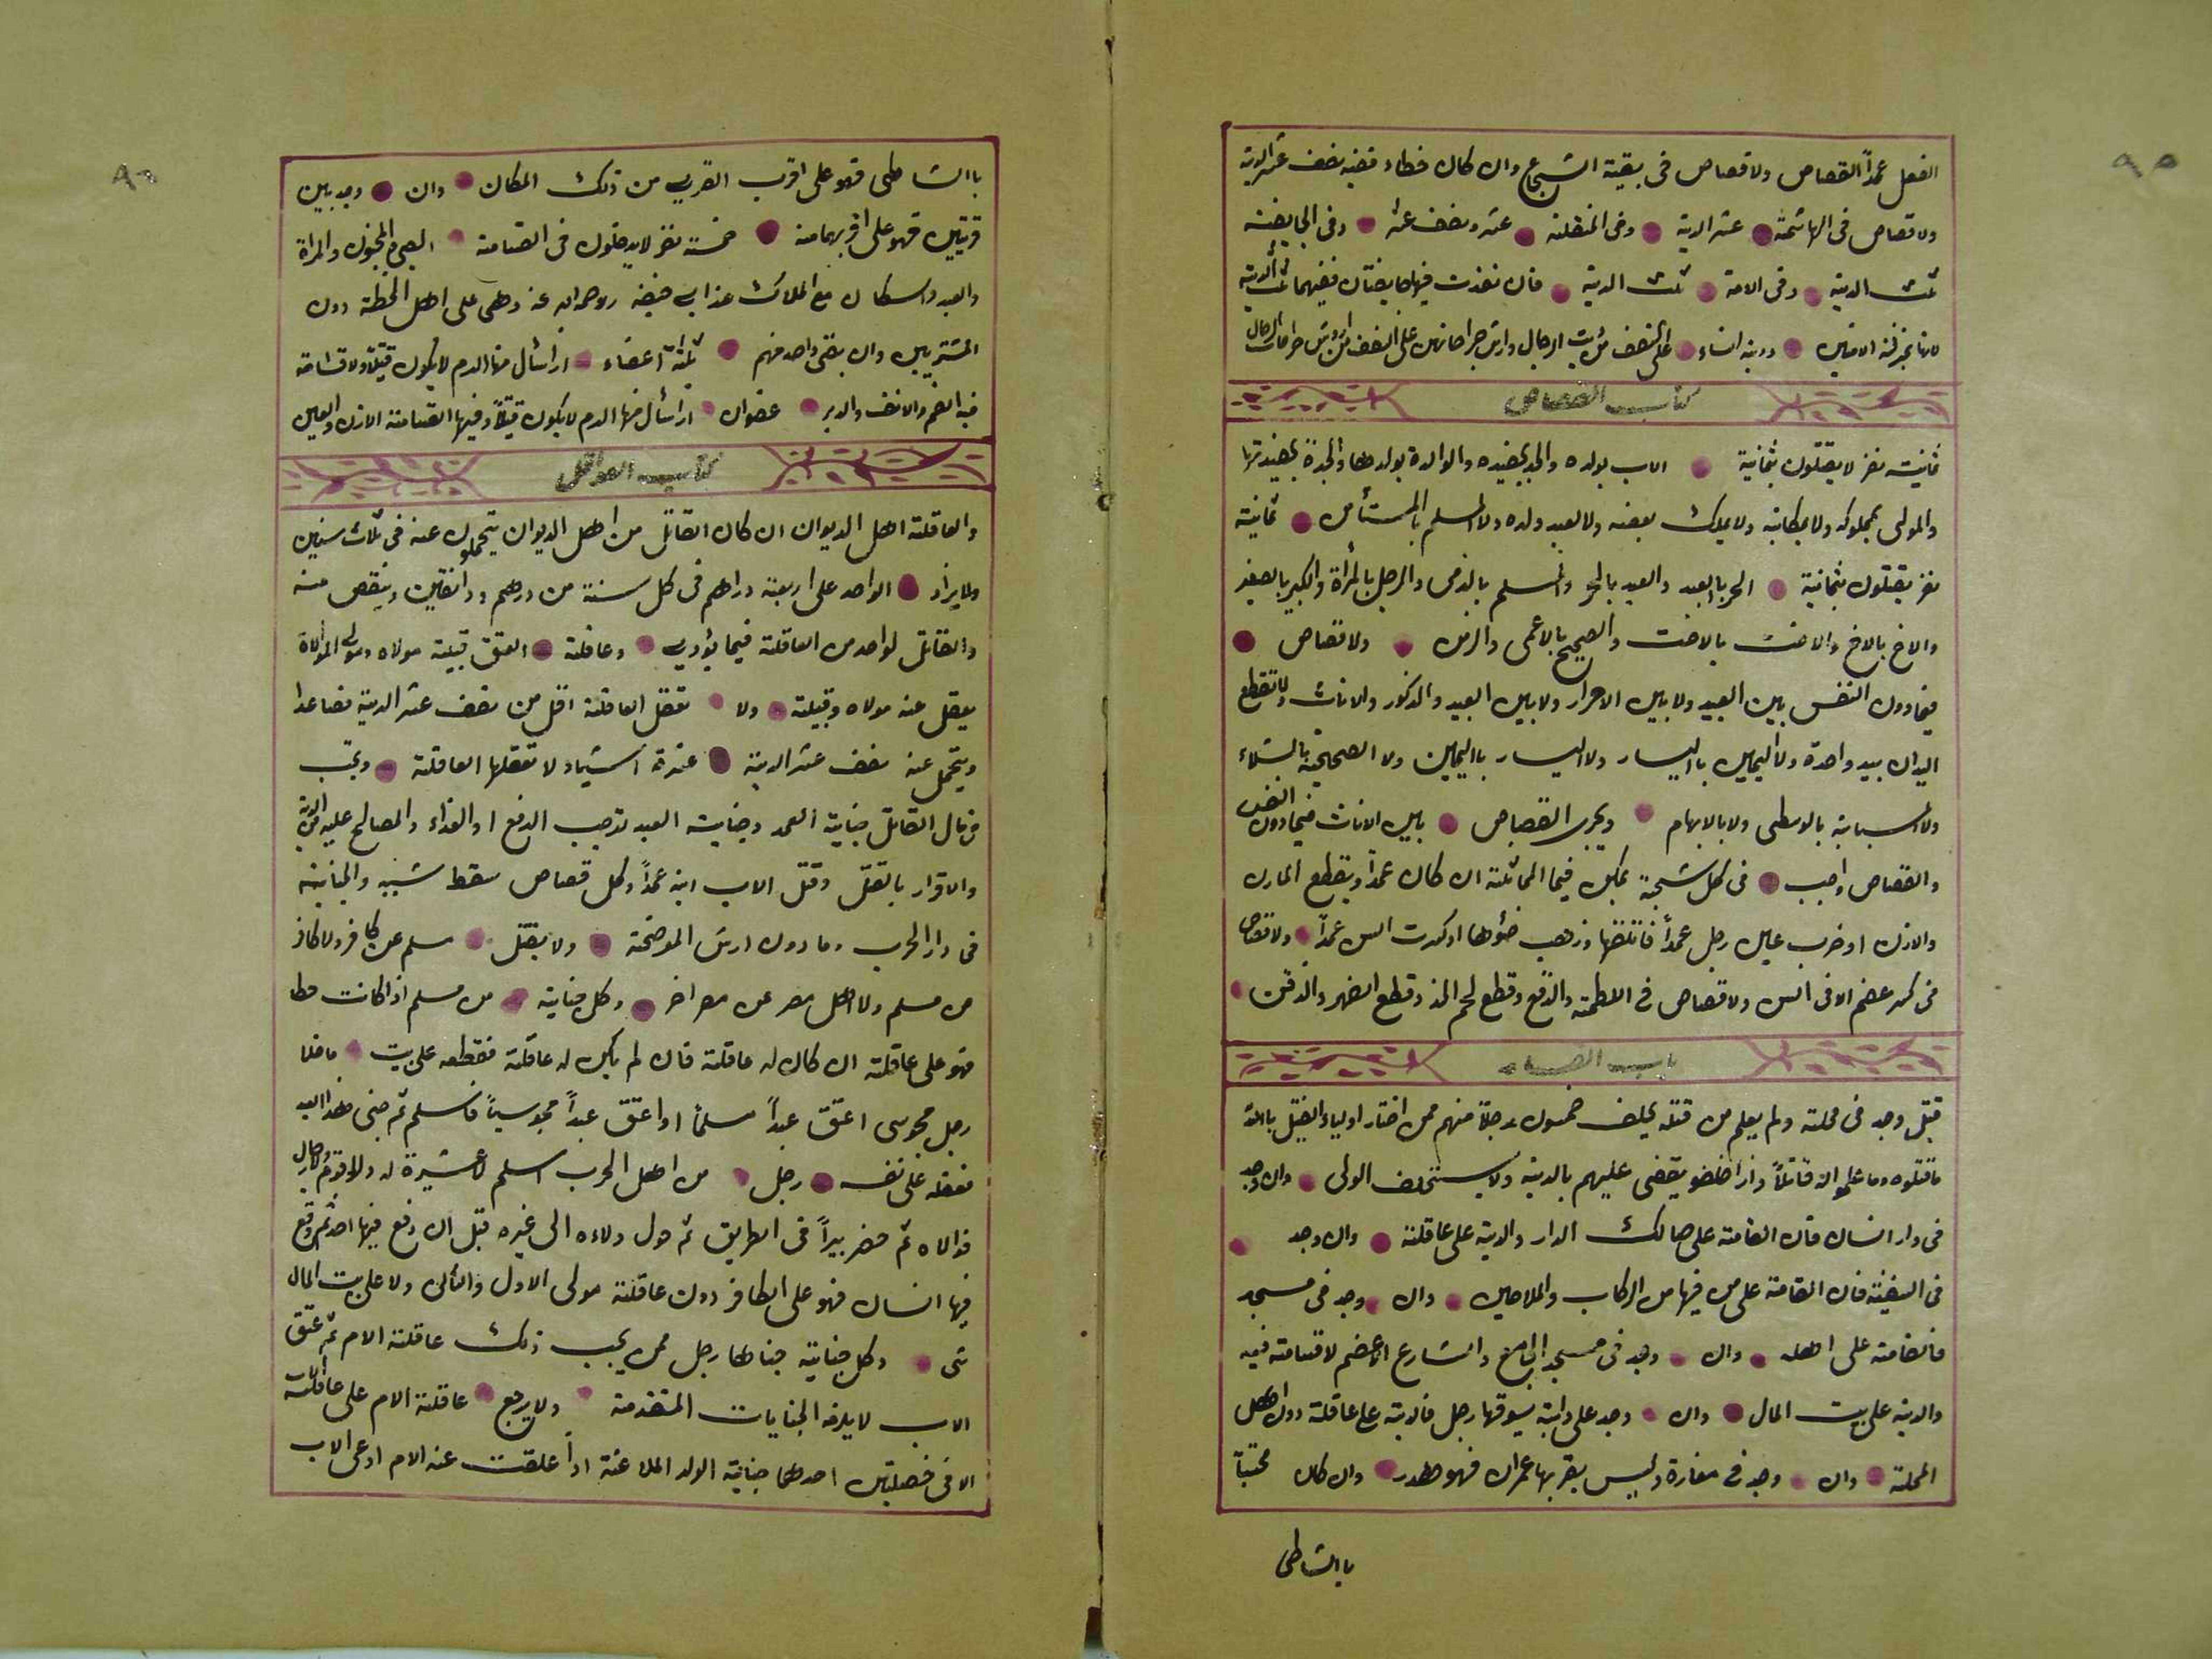 الفعل عمداً القصاص ولا قصاص فى بقية الشجاع وان كان خطاء ففيه نصف عشر الدية
ولا قصاص فى الهاشمة عشر الدية وفى المنقلة عشر ونصف عشر وفى الجايفة
ثلث الدية وفى الامة ثلث الدية فان نفذت فيها جايفتان ففيهما ثلثا الدية
ودية النساء على النصف من دية الرجال وارش جراحاتهن على النصف من اروش جراحات الرجال
كتاب القصاص
ثمانية نفر لا يقتلون بثمانية الاب بولده والجد بحفيده والوالدة بولدها والجدة بحفيدتها
والمولى بمملوكه ولا بمكاتبه ولا بملك بعضه ولا لعبد ولده ولا المسلم بالمستأمن ثمانية
نفر يقتلون بثمانية الحر بالعبد والعبد بالحر والمسلم بالذمى والرجل بالمرأة والكبير بالصغير
والاخ بالاخ والاخت بالاخت والصحيح بالاعمى والزمن ولا قصاص
فيما دون النفس بين العبيد ولا بين الاحرار ولا بين العبيد والذكور والاناث ولا تقطع
اليدان بيد واحدة ولا اليمين باليسار ولا اليسار باليمين ولا الصحيحة بالشلاء
ولا السبابة بالوسطى ولا بالابهام ويجرى القصاص بين الاناث فيما دون النفس
والقصاص واجب فى كل شجة يمكن فيها المماثلة ان كان عمداً ويقطع المارن
والاذن او ضرب عين رجل عمداً فانتقضها وذهب ضوؤها او كسرت السن عمداً ولا قصاص
فى كسر عضم الا فى السن ولا قصاص فى اللطمة والدفع وقطع لحم الخد وقطع الضهر والدقن
باب القسامه
قتيل وجد فى محلة ولم يعلم من قتله يحلف خمسون رجلاً منهم ممن اختار اولياء القتيل بالله
ما قتلوه وما علموا له قاتلاً واذا حلفو يقضى عليهم بالدية ولا يستحلف الولى وان وجد
فى دار انسان فان القسامة على صالك الدار والدية على عاقلة وان وجد
فى السفينة فان القسامة على من فيها من الركاب والملاحين وان وجد فى مسجد
فالقسامة على اهله وان وجد فى مسجد الجامع والشارع الاعضم لا قسامة فيه
والدية على بيت المال وان وجد على دابة يسوقها رجل فالدية على عاقلة دون اهل
المحلة وان وجد فى مغارة وليس بقربها عمران فهو هدر وان كان محتبساً
باالشاطى
باالشاطى فهو على اقرب القرى من ذلك المكان وان وجد بين
قريتين فهو على اقربهما منه خمسة نفر لا يدخلون فى القسامة الصبى والمجنون والمراة
والعبد والسكان مع الملاك عند ابى حنيفة رحمه الله عنه وهى على اهل الخطة دون
المشتريين وان بقى واحد منهم ثلثة اعضاء اذا سأل منها الدم لا يكون قتيلاً ولا قسامة
فيه الفم والانف والدبر عضوان اذا سأل منها الدم لا يكون قتيلاً وفيها القسامة الاذن والعين
كتاب العواقل
والعاقلة اهل الديوان ان كان القاتل من اهل الديوان يتحملون عنه فى ثلاث سنين
ولا يزاد الواحد على اربعة دراهم فى كل سنة من درهم ودانقين وينقص منه
والقاتل لواحد من العاقلة فيما يؤدى وعاقلة العتق قبيلة مولاه ومولى الموالاة
يعقل عنه مولاه وقبيلته ولا تعقل العاقلة اقل من نصف عشر الدية فصاعدا
ويتحمل عنه نصف عشر الدية عشرة اشياء لا تعقلها العاقلة وتجب
فى مال القاتل جناية العمد وجناية العبد توجب الدفع او الفداء والمصالح عليه من الدية
والاقرار بالقتل وقتل الاب ابنه عمداً وكل قصاص سقط شبهه والجناية
فى دار الحرب وما دون ارش الموضحة ولا يعقل مسلم عن كافر ولا كافر
من مسلم ولا اهل مصر عن مصر اخر وكل جناية من مسلم اذا كانت خطا
فهو على عاقلة ان كان له عاقلة فان لم يكن له عاقلة فعقله على بيت ما خلا
رجل مجوسى اعتق عبداً مسلماً او اعتق عبداً مجوسياً فاسلم ثم جنى هذا العبد
فعقله على نفسه رجل من اهل الحرب اسلم لا عشيرة له ولا قوم
فوالاه ثم حضر بيراً فى الطريق ثم حول ولاءه الى غيره قبل ان وقع فيها احد ثم وقع
فيها انسان فهو على الحافر دون عاقلة مولى الاول والثانى ولا على بيت المال
شى وكل جناية جناها رجل ممن يجب ذلك عاقلة الام ثم عتق
الاب لا يلزمه الجنايات المتقدمة ولا يرجع عاقلة الام على عاقلة الاب
الا فى خصلتين احدهما جناية الولد الملاعنة اذا علقت عنه الام ادعى الاب